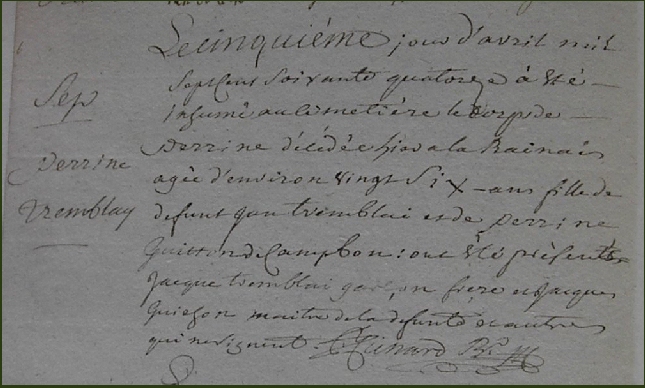 Le cinquiéme jour d'avril mil
Sep
Sept cent soixante quatorze à été
inhumé au cimetière le corps de
perrine
perrine décédée hier a la Rainais
agée d'environ vingt Six ans fille de
tremblay
defunt jan tremblai et de perrine
Guitton de Campbon : ont été présents
jacque tremblai garçon frère et jacques
maitre de la defunte et autres
qui ne signent.